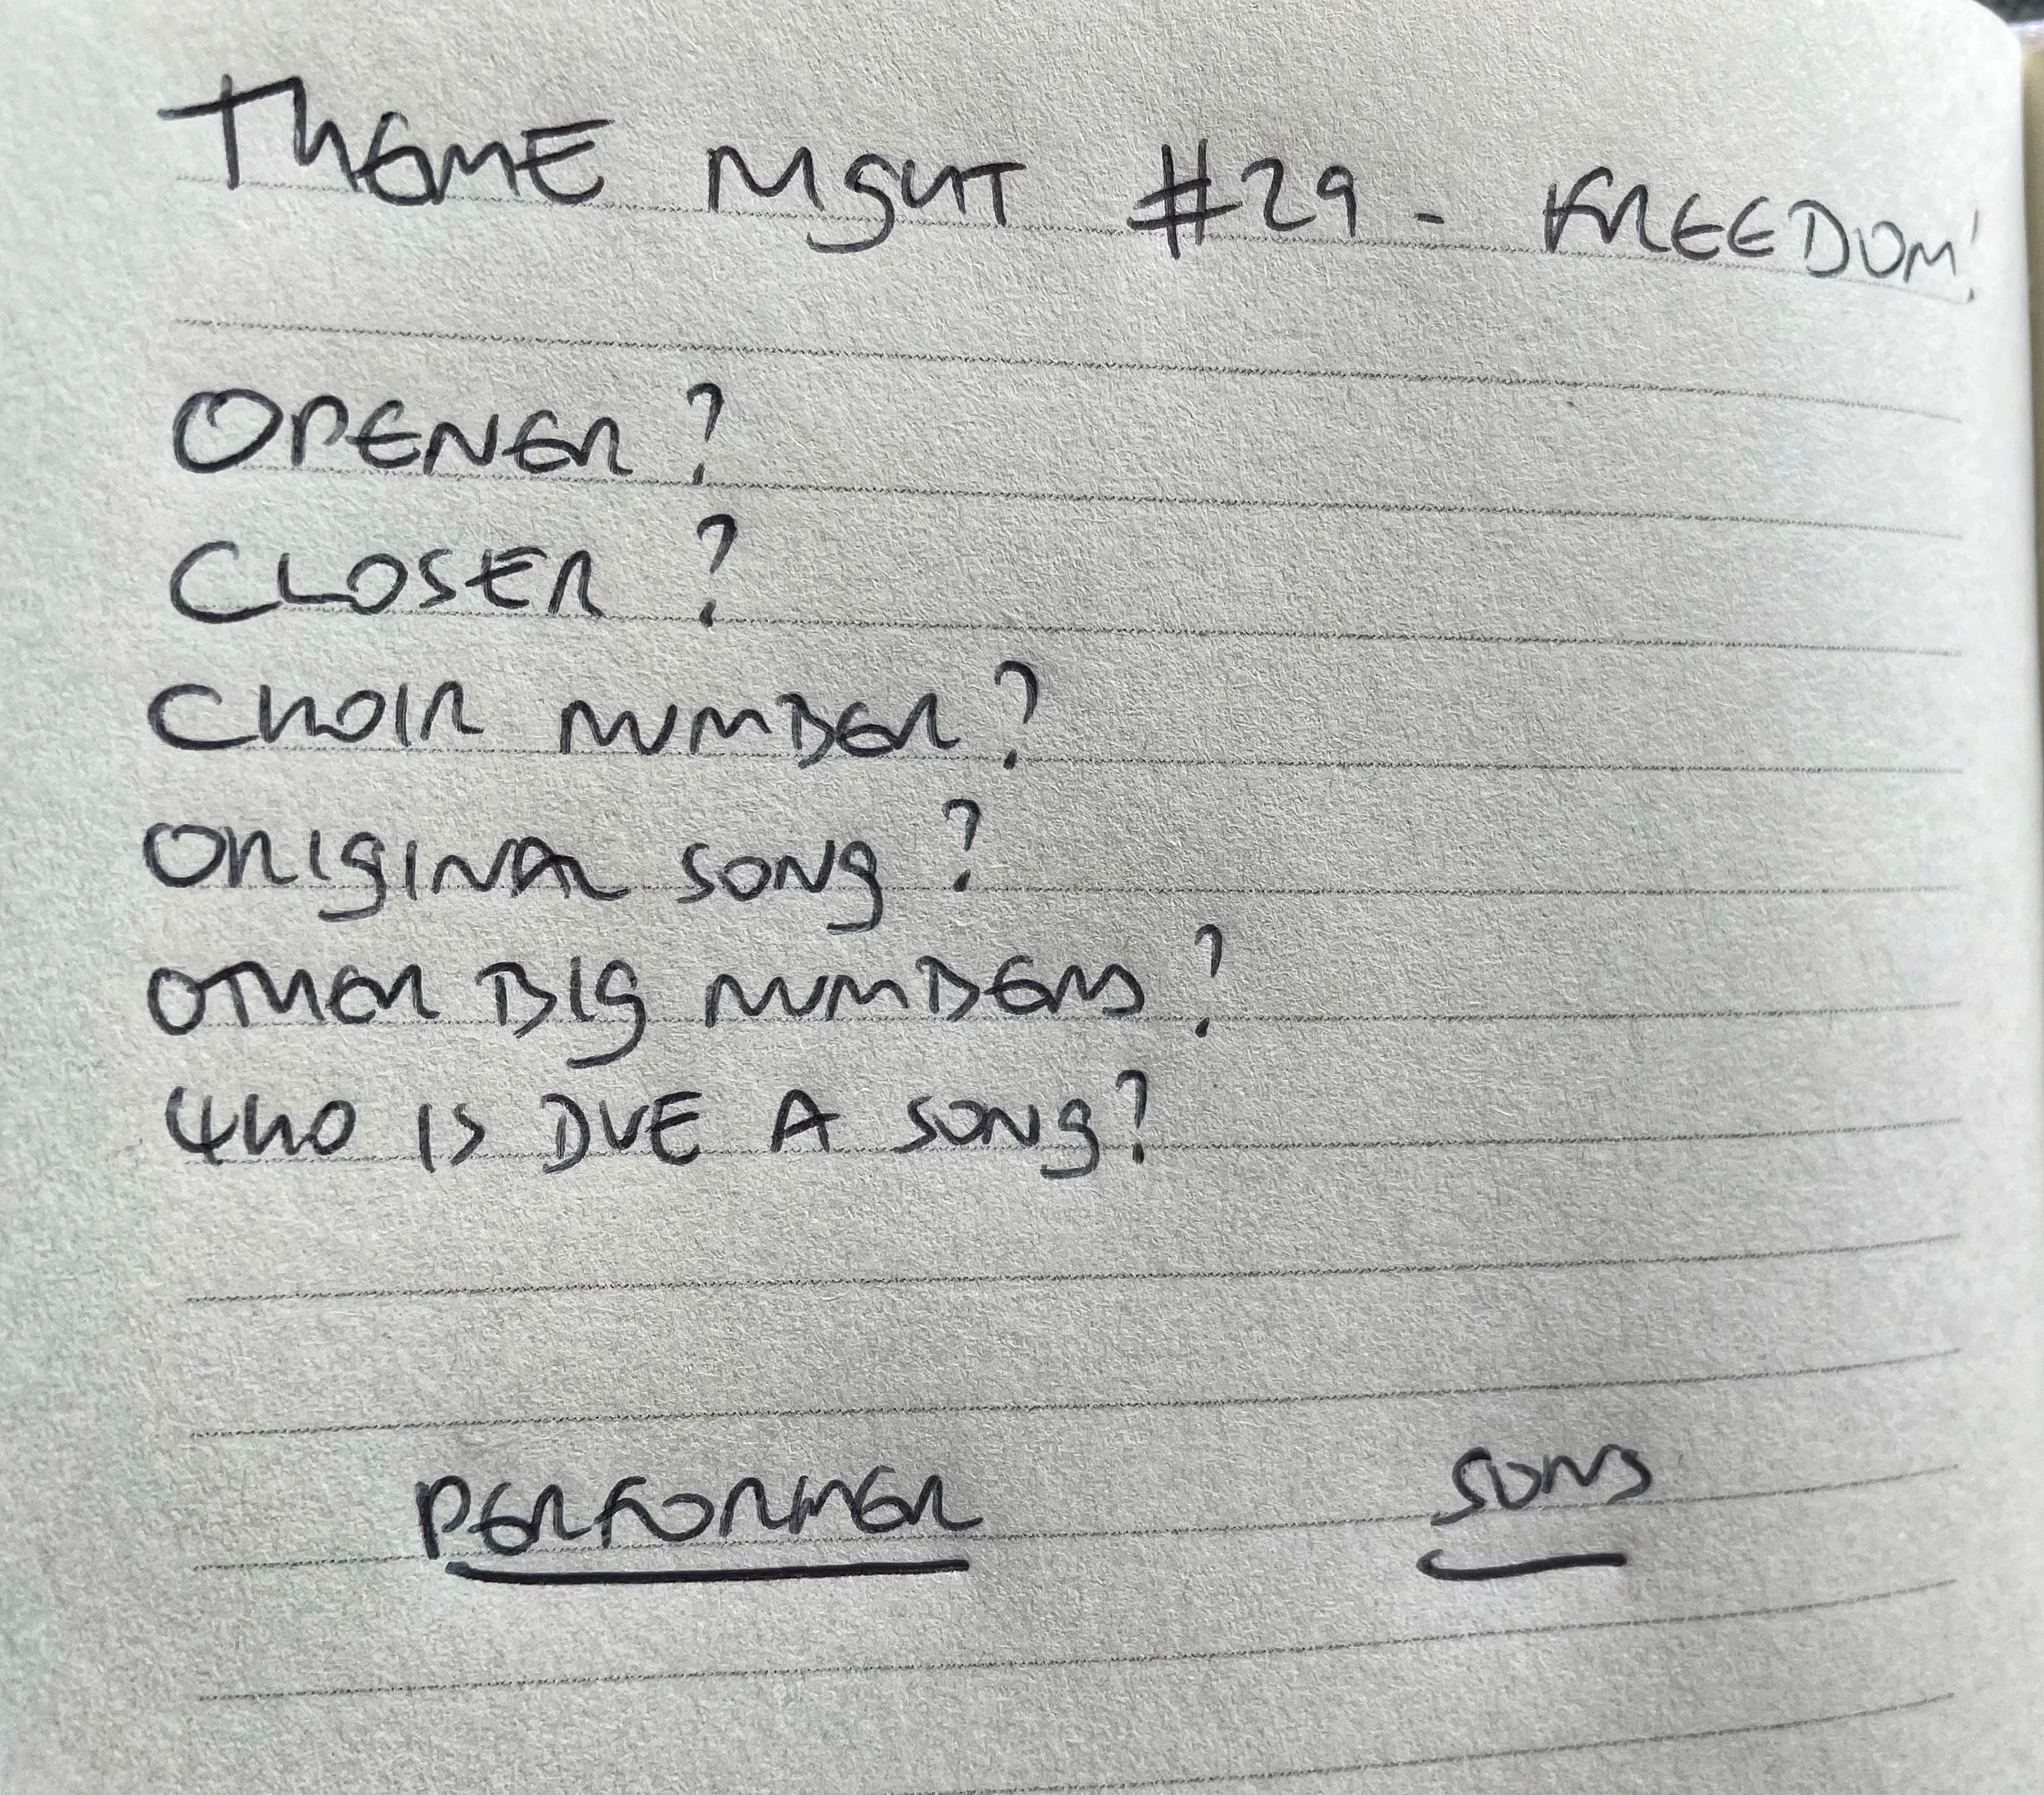 THEME NIGHT #29 - FREEDOM!
OPENER?
CLOSER?
CHOIR NUMBER?
ORIGINAL SONG?
OTHER BIG NUMBERS?
WHO IS DUE A SONG?
PERFORMER SONG